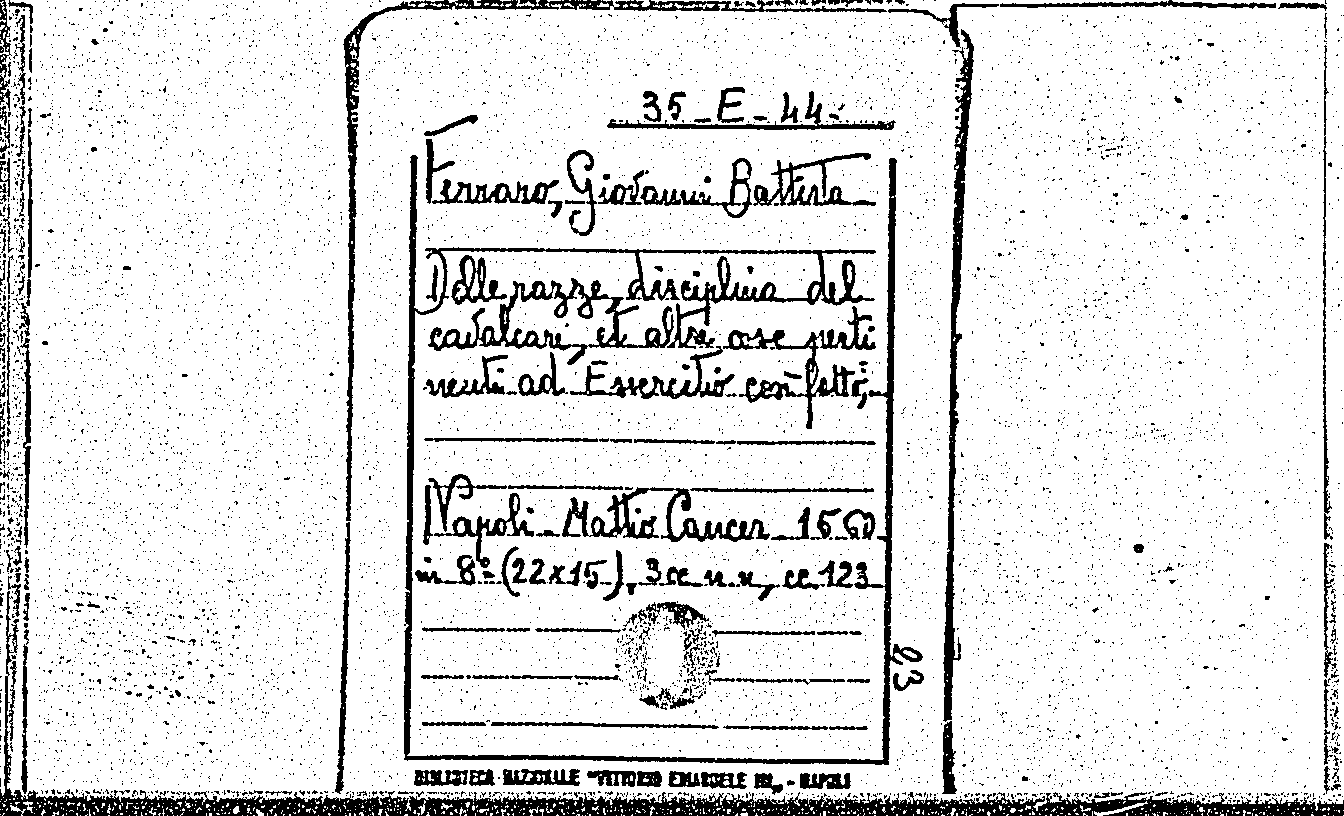 35-E-44-
Ferraro, Giovanni Battista
Delle razze, disciplina del
cavalcare, et altre cose perti
nenti ad Essercitio così fatto,
Napoli - Mattio Cancer - 1560
in 8º (22x15), 3 cc n.n, cc 123
23
BIBLIOTECA NAZIONALE "VITTORIO EMANUELE III„ - NAPOLI